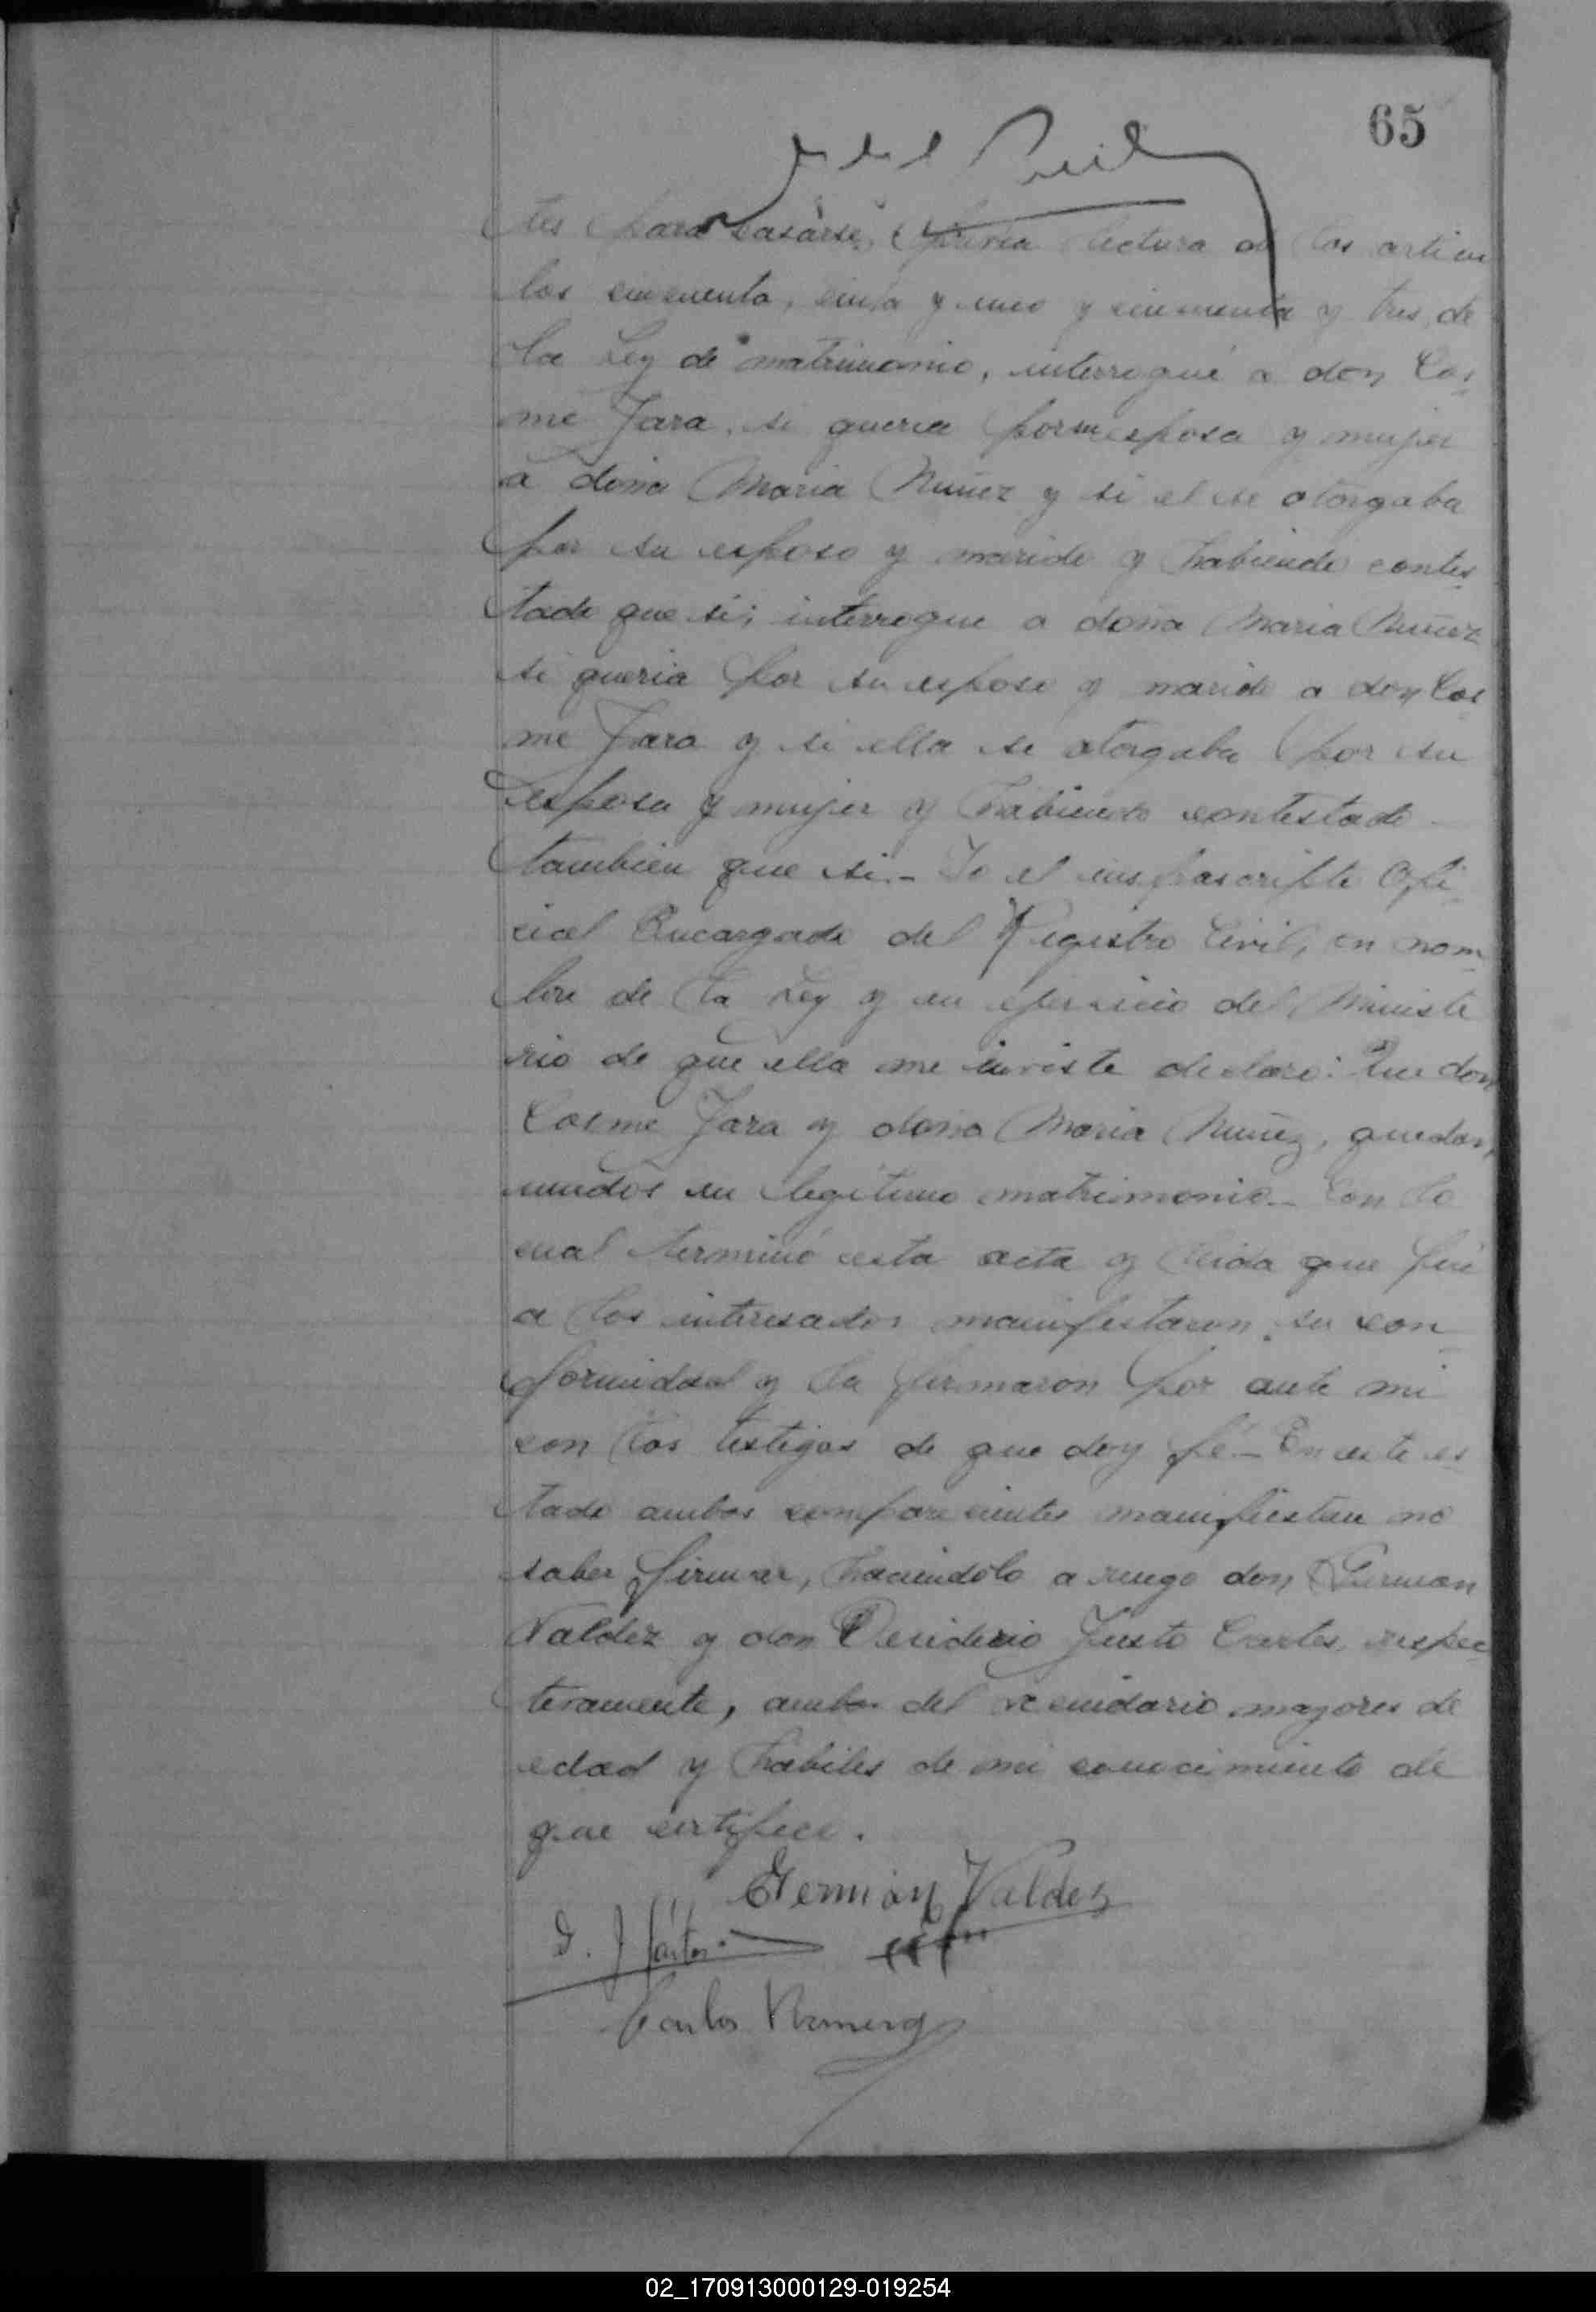 65
tes para casarse, previa lectura de los articu
los cincuenta, cinta y uno y cincuenta y tres, de
la Ley de matrimonio, interrogué a don Cos
me Jara, si queria por su esposa y mujer
a doña Maria Nuñez y si el se otorgaba
por su esposo y marido y habiendo contes
tado que si; interrogue a doña Maria Nuñez
si queria por su esposo y marido a don Cos
me Jara y si ella se otorgaba por su
esposa y mujer y habiendo contestado
tambien que si.- Yo el infrascripto Ofi
cial Encargado del Registro Civil, en nom
bre de la Ley y en ejercicio del Ministe
rio de que ella me inviste declaro: Que don
Cosme Jara y doña Maria Nuñez, quedan
unidos en legitimo matrimonio.- Con lo
cual terminó esta acta y leida que fué
a los interesados manifestaron su con
formidad y la firmaron por ante mi
con los testigos de que doy fé.- En este es
tado ambos comparecientes manifiestan no
saber firmar, haciendolo a ruego don German
Valdez y don Desiderio Justo Cartes, respec
tivamente, ambos del vecindario mayores de
edad y habiles de mi conocimiento de
que certifico.
German Valdez
D. J. Cartes
Carlos Romero
02_170913000129-019254